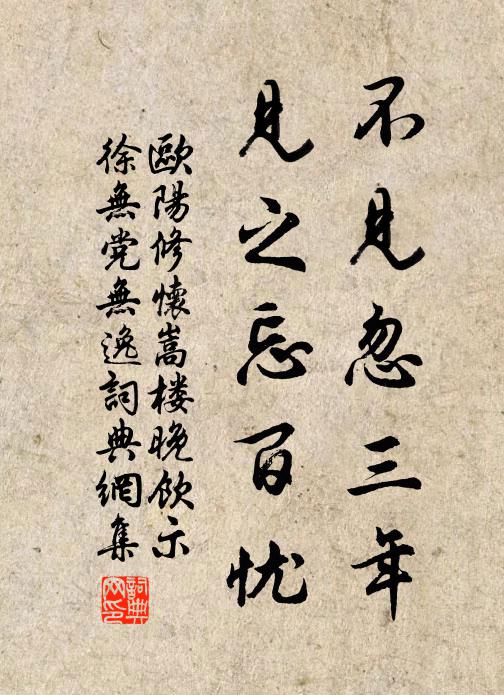 不见忽三年
见之忘百忧
歐陽修懷嵩楼晚飲示
徐無党無逸詞典網集
詞典网印